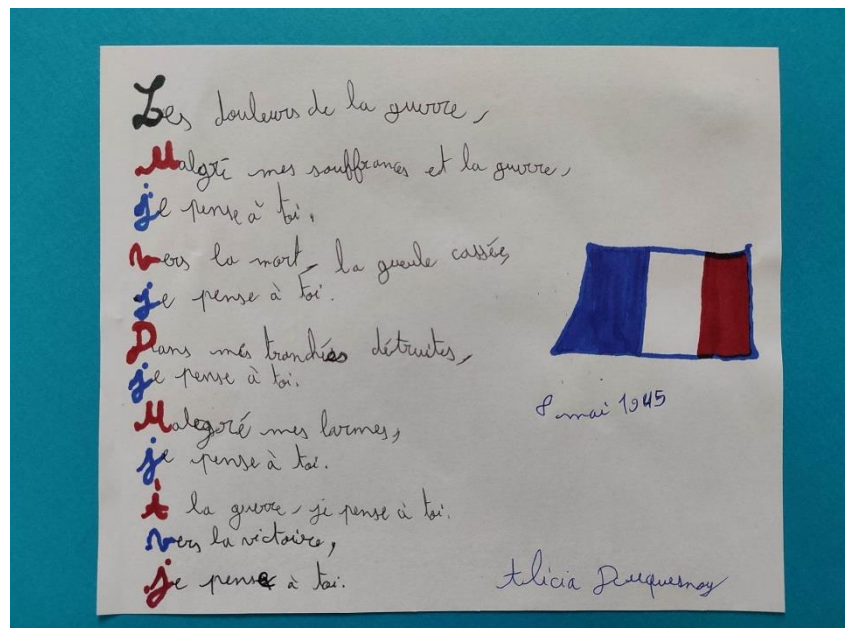 Les douleurs de la guerre,
Malgré mes souffrances et la guerre,
je pense à toi,
vers la mort, la gueule cassée,
je pense à toi.
Dans mes tranchées détruites,
je pense à toi.
Malegré mes larmes,
je pense à toi.
À la guerre, je pense à toi.
vers la victoire,
je pense à toi.
8 mai 1945
Alicia Duquesnoy